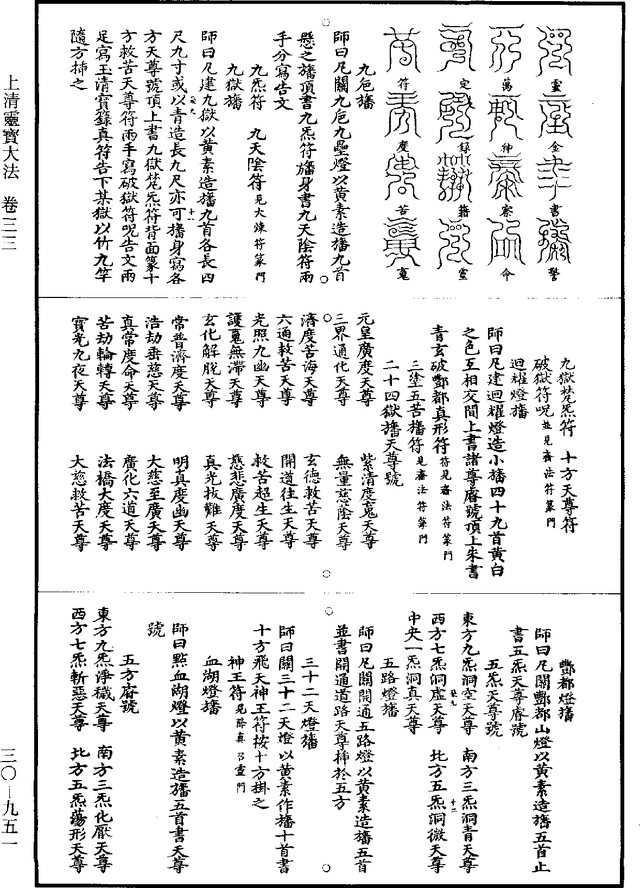 上清靈寶大法 卷三三
三〇—九五一
靈 金 書 誓
萬 神 察 命
定 録 籍 靈
符 度 苦 䰟
九巵旛
師曰凡關九巵九壘燈以黄素造旛九首
懸之旛頂書九炁符旛身書九天陰符兩
手分寫告文
九炁符 九天陰符見大煉符篆門
九獄旛
師曰凡建九獄以黄素造旛九首各長四
尺九寸或以青造長九尺亦可旛身寫各
方天尊號頂上書九獄梵炁符背面篆十
方救苦天尊符兩手寫破獄符呪告文兩
足寫玉清寶籙真符告下某獄以竹九竿
隨方揷之
九獄梵炁符 十方天尊符
破獄符呪並見齋法符篆門
迴耀燈旛
師曰凡建迴耀燈造小旛四十九首黄白
之色互相交間上書諸尊睿號頂上朱書
青玄破酆都真形符符見齋法符篆門
三塗五苦旛符見齋法符篆門
二十四獄旛天尊號
元皇廣度天尊 紫清度䰟天尊
三界通化天尊 無量慈陰天尊
濟度苦海天尊 玄德救苦天尊
六通救苦天尊 開道往生天尊
光照九幽天尊 救苦超生天尊
護䰟無滯天尊 慈悲廣度天尊
玄化解脱天尊 真光拔難天尊
常普濟度天尊 明真度幽天尊
浩劫垂慈天尊 大慈至廣天尊
真常度命天尊 廣化六道天尊
苦劫輪轉天尊 法橋大度天尊
寶光九夜天尊 大慈救苦天尊
酆都燈旛
師曰凡關酆都山燈以黄素造旛五首止
書五炁天尊睿號
五炁天尊號
東方九炁洞空天尊 南方三炁洞青天尊
西方七炁洞虚天尊 北方五炁洞微天尊
中央一炁洞真天尊
五路燈旛
師曰凡關開通五路燈以黄素造旛五首
並書開通道路天尊揷於五方
三十二天燈旛
師曰關三十二天燈以黄素作旛十首書
十方飛天神王符按十方掛之
神王符見除真召靈門
血湖燈旛
師曰點血湖燈以黄素造旛五首書天尊
號
五方睿號
東方九炁淨穢天尊 南方三炁化厭天尊
西方七炁斬惡天尊 北方五炁蕩形天尊